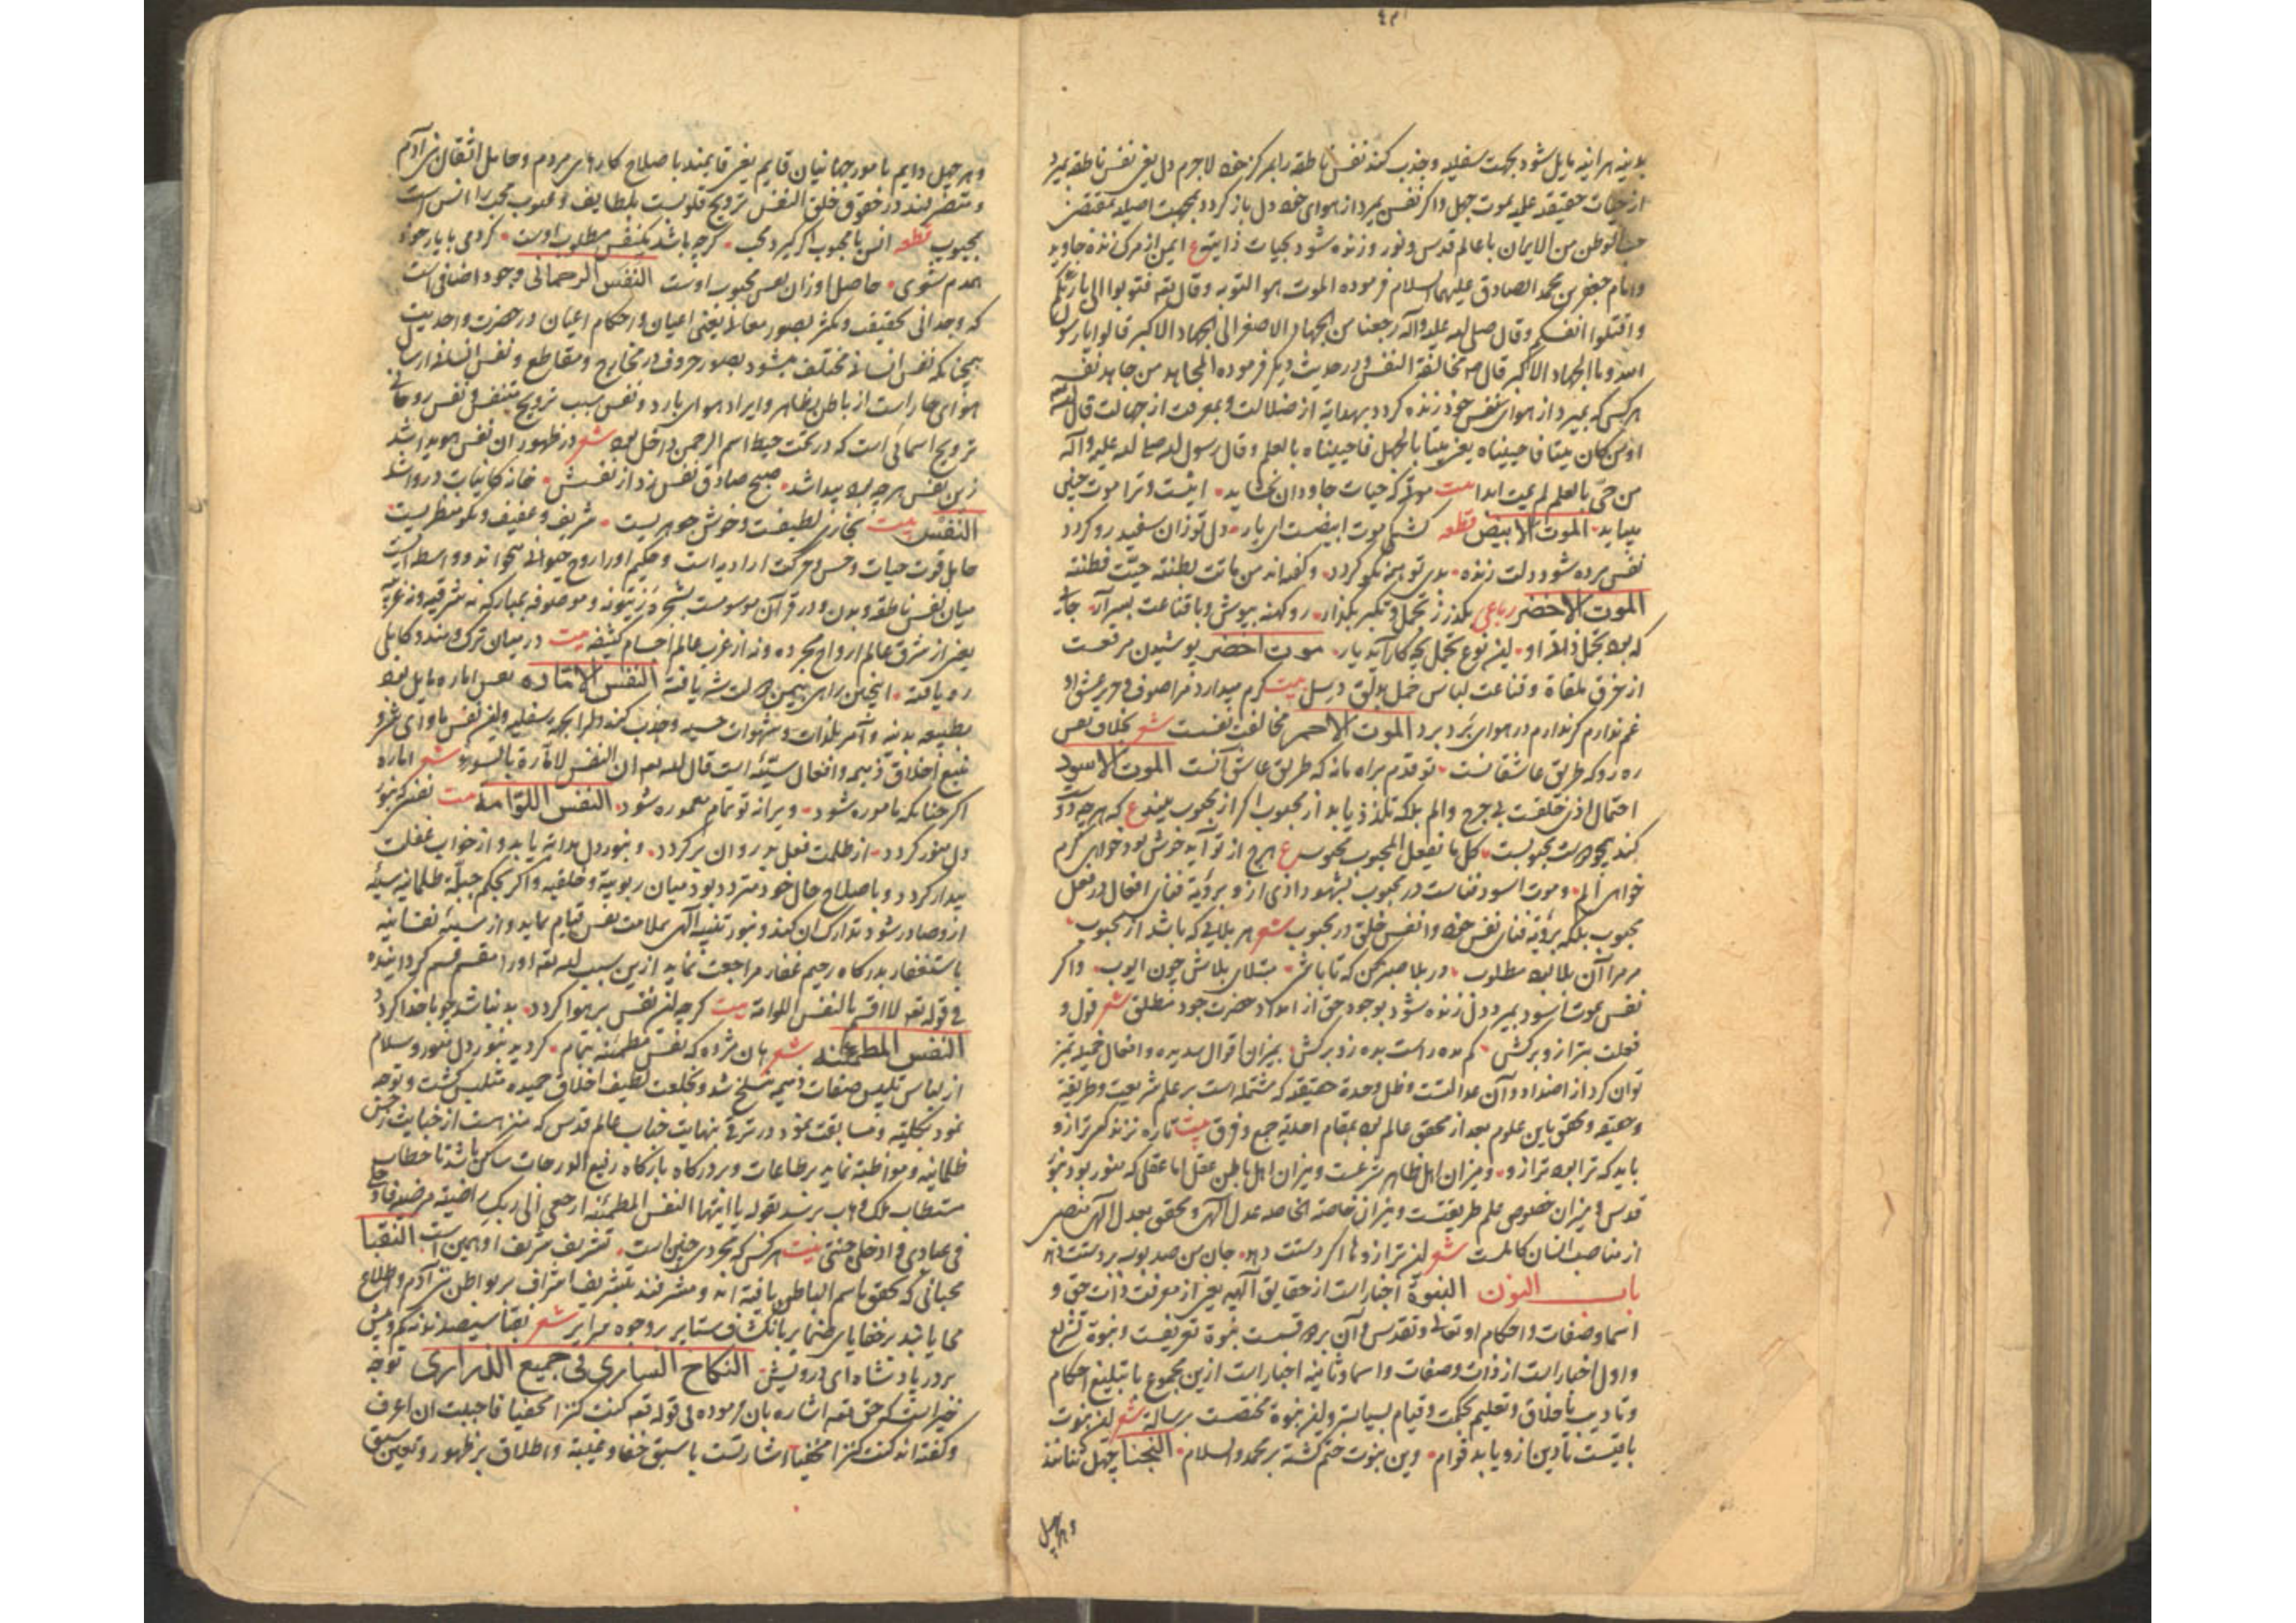 بدنیه هرآینه مایل شود بجهت سفلیه و جذب کند نفس ناطقه را بمرکز خود لاجرم دل یعنی نفس ناطقه بمیرد
از حیات حقیقه علمیه بموت جهل و اگر نفس بمیرد از هوای خود دل باز گردد بجهت اصلیه بمقتضی
حب الوطن من الایمان با عالم قدس و نور و زنده شود بحیات ذاتیه ع ایمن از مرک زنده جاوید
و امام جعفر بن محمد الصادق علیهما السلام فرموده الموت هو التوبه و قال تعه فتوبوا الی بارئکم
و اقتلوا انفسکم و قال صلی الله علیه و آله رجعنا من الجهاد الاصغر الی الجهاد الاکبر قالوا یا رسول
الله و ما الجهاد الاکبر قال ص مخالفة النفس و در حدیث دیگر فرموده المجاهد من جاهد نفسه
هر کس که بمیرد از هوای نفس خود زنده گردد بهدایة از ضلالت و بمعرفت از جهالت قال الله تعه
او من کان میتا فاحییناه یعنی میتا بالجهل فاحییناه بالعلم و قال رسول الله صلی الله علیه و آله
من حی بالعلم لم یمت ابدا بیت موتی که حیات جاودان بخشاید • اینست و ترا موت چنین
میباید الموت الابیض قطعه گشنگی موت ابیضست ای یار • دل تو زان سفید رو گردد
نفس مرده شود دلت زنده • بدی تو همه نکو گردد • و گفته‌اند من ماتت بطنته حییت فطنته
الموت الاخضر رباعی بگذر ز تجمل و تکبر بگذار • رو کهنه بپوش و با قناعت بسر آر • جانی
که بود تجمل ذات او • این نوع تجمل بچه کار آید یار • موت اخضر پوشیدن مرقعست
از خرق ملقاة و قناعت لباس
غم ندارم گر ندارم در هوای برد برد الموت الاحمر مخالفت نفست شعر بخلاف نفس
ره رو که طریق عاشقانست • تو قدم براه ما نه که طریق عاشق آنست الموت الاسود
احتمال اذی خلقست بی جرح و الم بلکه تلذذ یابد از محبوب اگر از محبوب بیند ع که هرچه دوست
کند همچو دوست محبوبست • کل ما یفعل المحبوب محبوب ع هرچ از تو آید خوش بود خواهی کرم
خواهی الم • و موت اسود فناست در محبوب بشهود اذی ازو برؤیة فنای افعال در فعل
محبوب بلکه برؤیة فنای نفس خود و انفس خلق در محبوب شعر هر بلایی که باشد از محبوب •
مر مرا آن بلا بود مطلوب • در بلا صبر کن که تا باشی • مبتلای بلاش چون ایوب • و اگر
نفس بموت اسود بمیرد دل زنده شود بوجود حق از امداد حضرت جود مطلق شعر قول و
فعلت بترازو برکش • کم مده راست بده زود برکش • بمیزان اقوال سدیده و افعال حمیده تمیز
توان کرد از اضداد و آن عدالتست و ظل وحدة حقیقه که مشتمله است بر علم شریعت و طریقة
و حقیقه و محقق باین علوم بعد از تحقق عالم بود بمقام احدیة جمع و فرق بیت
باید که ترا بود ترازو • و میزان اهل ظاهر شرعست و میزان اهل باطن عقل اما عقلی که منور بود بنور
قدس و میزان خصوص علم طریقتست و میزان خاصة الخاصه عدل آلهی و محقق بعدل آلهی
از مناصب انسان کاملست شعر این ترازوها اگر دستت دهد • جان من صد بوسه بر دستت دهد
باب النون النبوة اخبار است از حقایق آلهیه یعنی از معرفت ذات حق و
اسما و صفات و احکام او تعالی و تقدس و آن بر دو قسمست نبوة تعریفست و نبوة تشریع
و اول اخبار است از ذات و صفات و اسما و ثانیه اخبار است ازین مجموع با تبلیغ احکام
و تادیب باخلاق و تعلیم بحکمت و قیام بسیاست و این نبوة مختصست برسالة شعر این نبوت
باقیست تا دین ازو یابد قوام • وین نبوت ختم گشته بر محمد والسلام • النجبا چهل تنانند
و هر چهل
و هر چهل دایم بامور جهانیان قایم یعنی قایمند باصلاح کارهای مردم و حامل اثقال بنی آدم
و متصرفند در حقوق خلق النفس ترویح قلوبست بلطایف غیوب محب را انس است
بمحبوب قطعه انس با محبوب اگر گیرد محب • گرچه باشد یکنفس مطلوب اوست • گر دمی با یار خود
همدم شوی • حاصل او زان نفس محبوب اوست النفس الرحمانی وجود اضافی است
که وحدانی بحقیقت و متکثر بصور معانی یعنی اعیان و احکام اعیان در حضرت واحدیت
همچنانکه نفس انسانی مختلف میشود بصور حروف در مخارج و مقاطع و نفس انسانی ارسال
هوای حار است از باطن بظاهر و ایراد هوای بارد و نفس سبب ترویح متنفس و نفس روحانی
ترویح اسمائی است که در تحت حیطه اسم الرحمن داخل بود شعر در ظهور آن نفس هویدا شد
زین نفس هرچه بود پیدا شد • صبح صادق نفس زد از نفسش • خانه کاینات دروا شد
النفس بیت بخاری لطیفست و خوش جوهریست • شریف و عفیف و نکو منظریست
حامل قوت حیات و حس و حرکت ارادیه است و حکیم او را روح حیوانی میخواند و واسطه ایست
میان نفس ناطقه و بدن و در قرآن موسومست بشجره زیتونه و موصوفه بمبارکه نه شرقیه و نه غربیه
یعنی از شرق عالم ارواح مجرده و نه از غرب عالم اجسام کثیفه بیت در میان ترک و هندو کابلی
ره یافته • النفس الاماره نفس اماره مایل بود
بطبیعه بدنیه و آمر بلذات و شهوات حسیه و جذب کند دل را بجهة سفلیه و این نفس ماوای شر و
منبع اخلاق ذمیمه و افعال سیئه است قال الله تعه ان النفس لامارة بالسوء شعر اماره
اگر چنانکه ماموره شود • ویرانه تو تمام معموره شود • النفس اللوامه بیت نفسی که بنور
دل منور گردد • از ظلمت فعل بد روان برگردد • و بنور دل هدایة یابد و از خواب غفلت
بیدار گردد و باصلاح حال خود متردد بود میان ربوبیة و خلقیه و اگر بحکم جبلة ظلمانیه سیئه
ازو صادر شود تدارک آن کند و بنور تنبیه آلهی بملامت نفس قیام نماید و از سیئه نفسانیه
باستغفار بدرگاه رحیم غفار مراجعت نماید ازین سبب الله تعه او را مقسم قسم گردانیده
فی قوله تعه لا اقسم بالنفس اللوامة بیت گرچه این نفس بر هوا گردد • بد نباشد چو با خدا گردد
النفس المطمئنه شعر هان مژده که نفس مطمئنه بتمام • گردید بنور دل منور و سلام
از لباس تلبیس صفات ذمیمه منسلخ شد و بخلعت لطیف اخلاق حمیده متلبس گشت و توجه
نمود بکلیه و مسابقت نمود در ترقی بنهایت جناب عالم قدس که منزهست از خباثت رجس
ظلمانیه و مواظبة نماید بر طاعات و بر درگاه بارگاه رفیع الدرجات ساکن باشد تا خطاب
مستطاب ملک وهاب برسد بقوله یا ایتها النفس المطمئنه ارجعی الی ربک راضیة مرضیه فادخلی
فی عبادی و ادخلی جنتی بیت هر کس که مجردی چنین است • تشریف شریف او همین است النقبا
محبانی که بتحقق باسم الباطن یافته‌اند و مشرفند بتشریف اشراف بر بواطن بنی آدم و اطلاع
می یابند بر خفایای ضمایر بانکشاف ستایر بر وجوه سرایر شعر نقبا سیصدند نه کم و بیش
بر در پادشاه ای درویش • النکاح الساری فی جمیع الذراری توجه
حبی است که حق تعه اشاره بآن فرموده فی قوله تعه کنت کنزا مخفیا فاحببت ان اعرف
و گفته‌اند کنت کنزا مخفیا اشارتست با سبق خفا و غیبة و اطلاق بر ظهور و تعین سبق